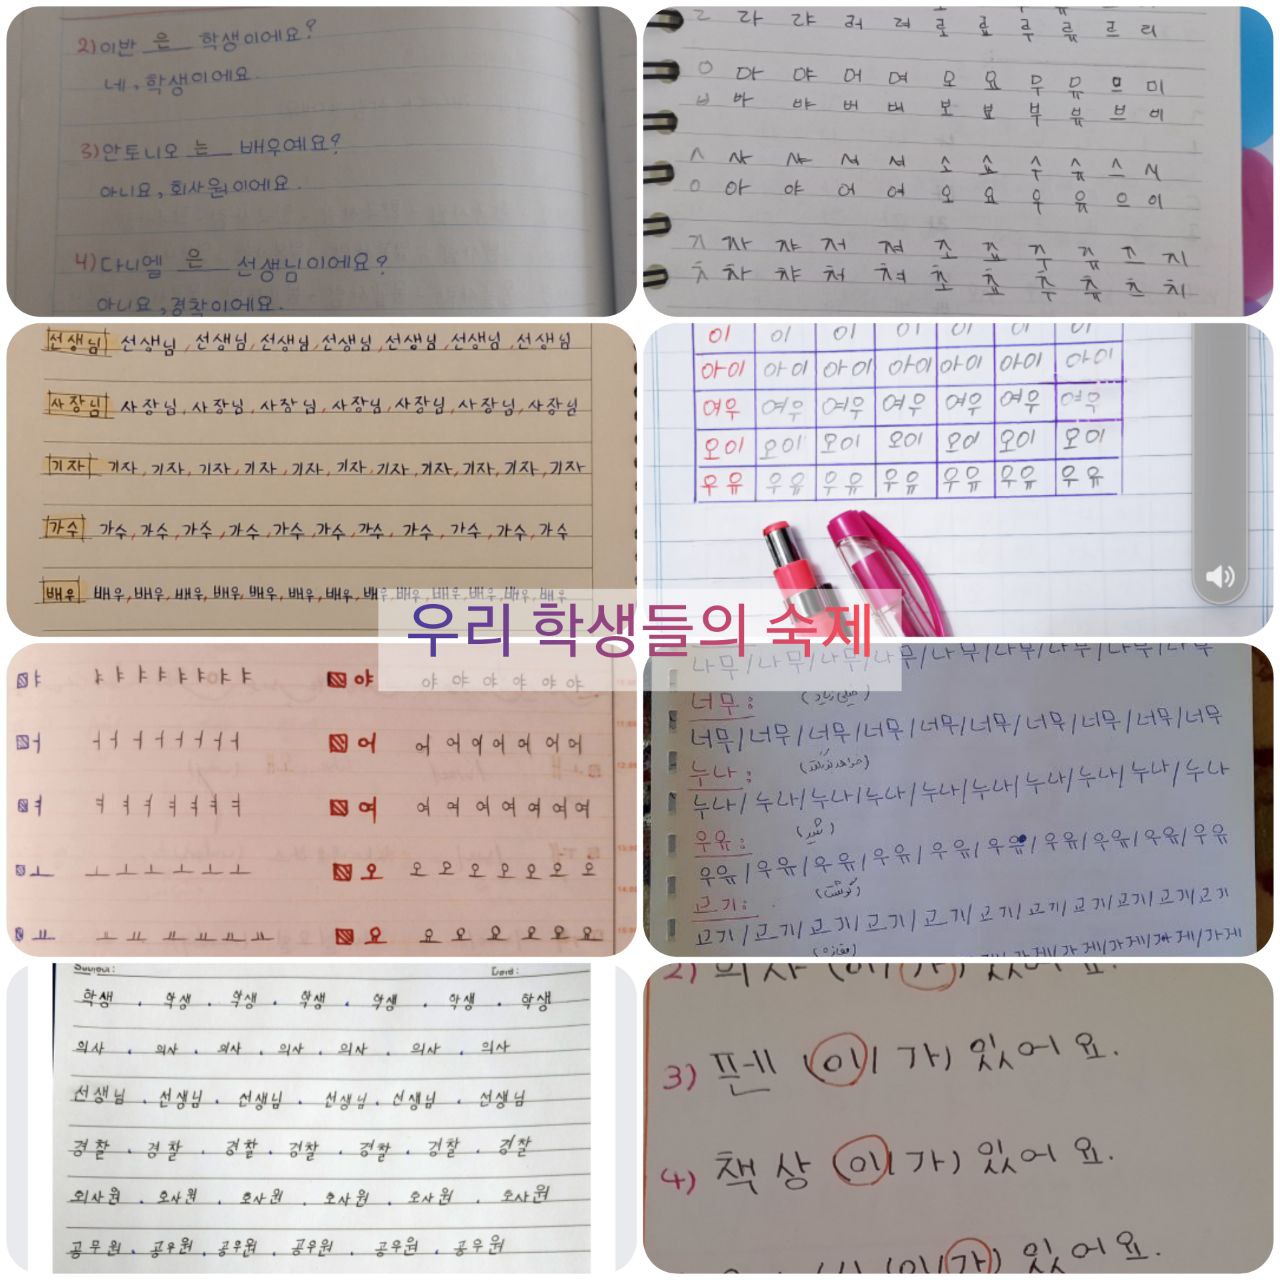 2) 이반 은 학생이에요?
네, 학생이에요.
3) 안토니오 는 배우예요?
아니요, 회사원이에요.
4) 다니엘 은 선생님이에요?
아니요, 경찰이에요.
ㄹ 라 랴 러 려 로 료 루 류 르 리
ㅁ 마 먀 머 며 모 묘 무 뮤 므 미
ㅂ 바 뱌 버 벼 보 뵤 부 뷰 브 비
ㅅ 사 샤 서 셔 소 쇼 수 슈 스 시
ㅇ 아 야 어 여 오 요 우 유 으 이
ㅈ 자 쟈 저 져 조 죠 주 쥬 즈 지
ㅊ 차 챠 처 쳐 초 쵸 추 츄 츠 치
선생님 선생님, 선생님, 선생님, 선생님, 선생님, 선생님, 선생님
사장님 사장님, 사장님, 사장님, 사장님, 사장님, 사장님, 사장님
기자 기자, 기자, 기자, 기자, 기자, 기자, 기자, 기자, 기자, 기자, 기자
가수 가수, 가수, 가수, 가수, 가수, 가수, 가수, 가수, 가수, 가수, 가수
배우 배우, 배우, 배우, 배우, 배우, 배우, 배우, 배우, 배우, 배우, 배우, 배우
이 이 이 이 이 이 이
아이 아이 아이 아이 아이 아이 아이
여우 여우 여우 여우 여우 여우 여우
오이 오이 오이 오이 오이 오이 오이
우유 우유 우유 우유 우유 우유 우유
우리 학생들의 숙제
ㅑ ㅑ ㅑ ㅑ ㅑ ㅑ ㅑ ㅑ ㅑ 야 야 야 야 야 야 야
ㅓ ㅓ ㅓ ㅓ ㅓ ㅓ ㅓ ㅓ ㅓ 어 어 어 어 어 어 어 어
ㅕ ㅕ ㅕ ㅕ ㅕ ㅕ ㅕ ㅕ 여 여 여 여 여 여 여 여
ㅗ ㅗ ㅗ ㅗ ㅗ ㅗ ㅗ 오 오 오 오 오 오 오 오
ㅛ ㅛ ㅛ ㅛ ㅛ ㅛ ㅛ 요 요 요 요 요 요 요
나무/나무/나무/나무/나무/나무/나무/나무/나무
너무: (خیلی زیاد)
너무/너무/너무/너무/너무/너무/너무/너무/너무
누나: (خواهر بزرگتر)
누나/누나/누나/누나/누나/누나/누나/누나/누나
우유: (شیر)
우유/우유/우유/우유/우유/우유/우유/우유/우유
고기: (گوشت)
고기/고기/고기/고기/고기/고기/고기/고기/고기
(مغازه)
가게/가게/가게/가게
학생 . 학생 . 학생 . 학생 . 학생 . 학생 . 학생
의사 . 의사 . 의사 . 의사 . 의사 . 의사 . 의사
선생님 . 선생님 . 선생님 . 선생님 . 선생님 . 선생님
경찰 . 경찰 . 경찰 . 경찰 . 경찰 . 경찰 . 경찰
회사원 . 회사원 . 회사원 . 회사원 . 회사원 . 회사원
공무원 . 공무원 . 공무원 . 공무원 . 공무원 . 공무원
2) 의자 (이/가) 있어요.
3) 펜 (이/가) 있어요.
4) 책상 (이/가) 있어요.
(이/가) 있어요.